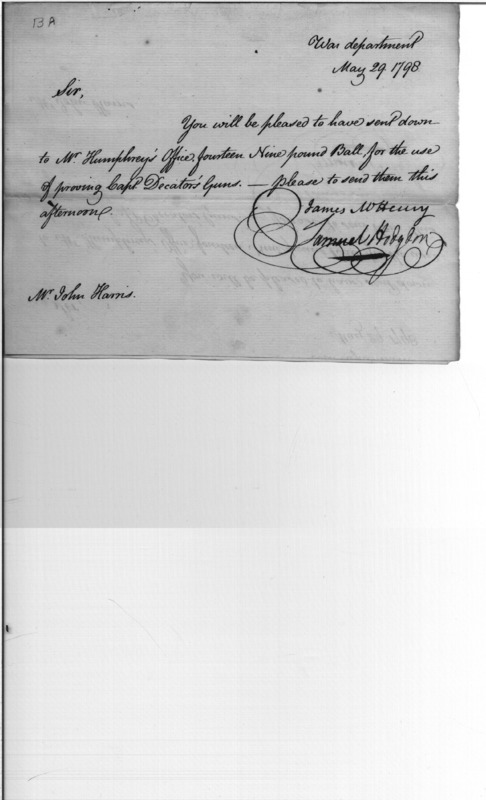 13 A
War department
May 29. 1798
Sir,
You will be pleased to have sent down
to Mr. Humphrey's Office, fourteen Nine pound Ball, for the use
of proving Capt Decator's Guns. — please to send them this
afternoon
James McHenry
Samuel Hodgdon
Mr. John Harris.